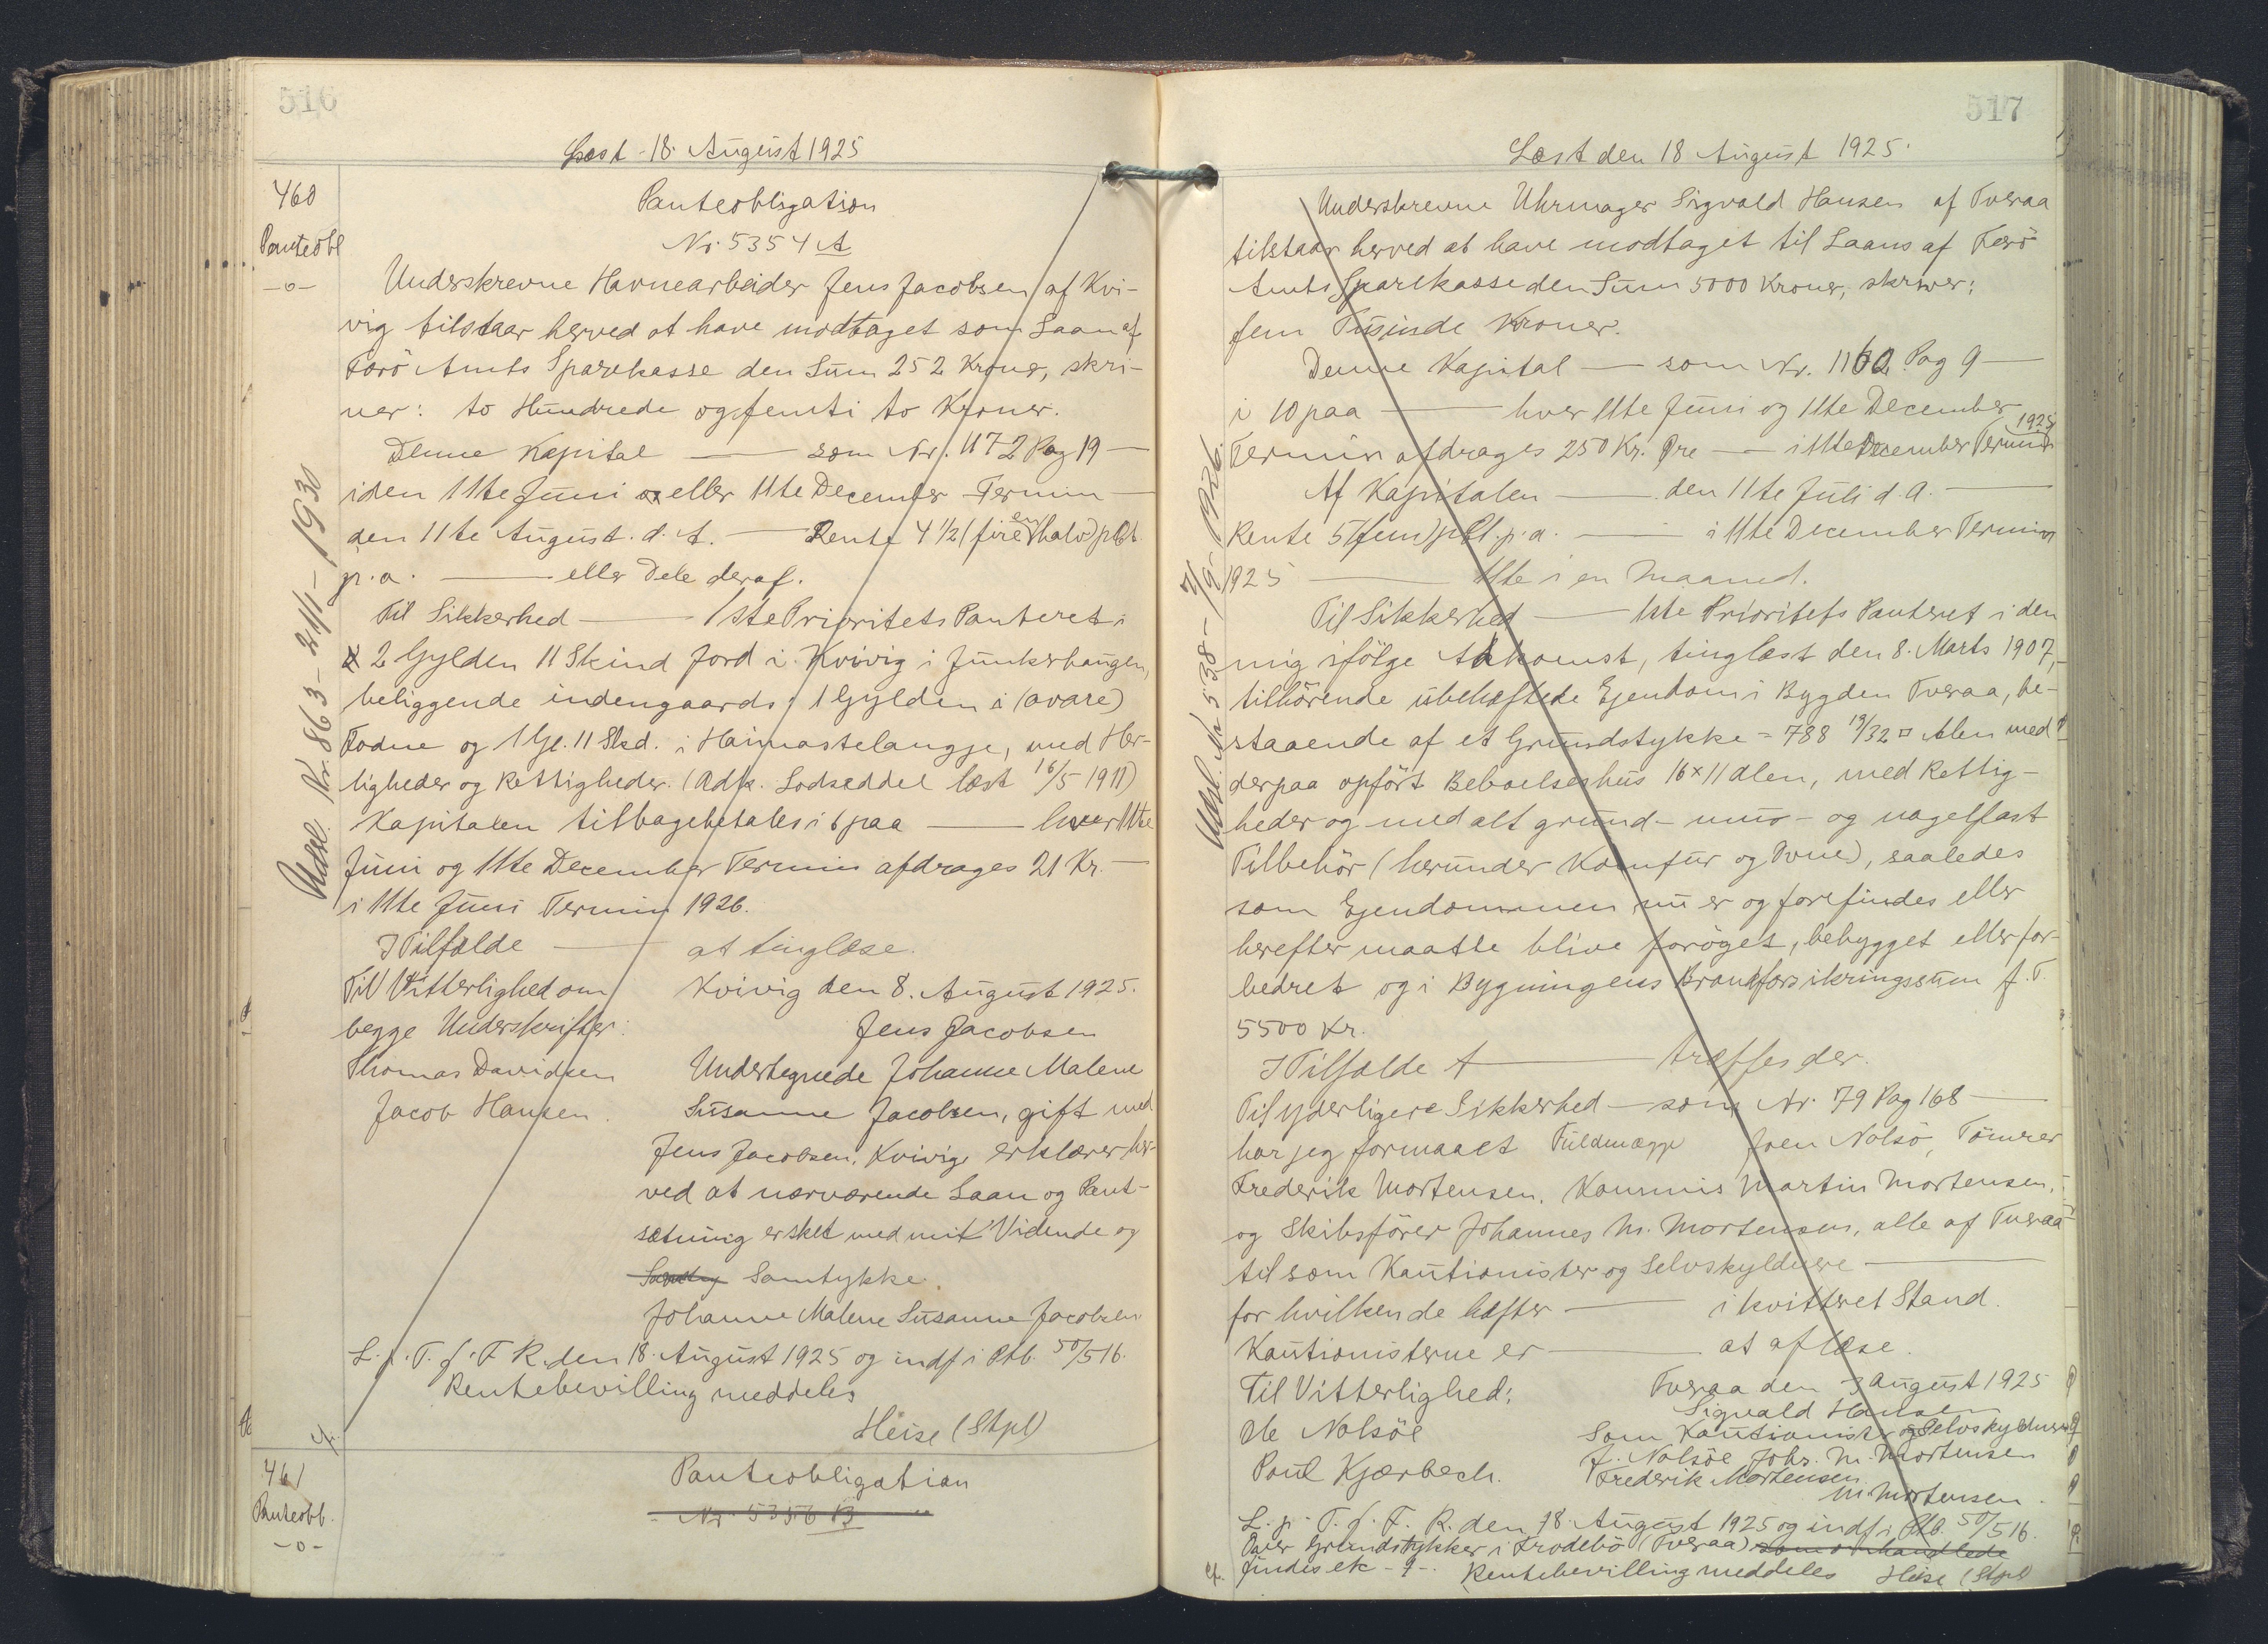 516
Læst 18. August 1925
460
Panteobl
-o-
Panteobligation
Nr. 5354 A
Underskrevne Havnearbeider Jens Jacobsen af Kvi-
vig tilstaar herved at have modtaget som Laan af
Færö Amts Sparekasse den Sum 252 Kroner, skri-
ver: to Hundrede og femti to Kroner.
Denne Kapital — som Nr. 1172 Pag 19 —
i den 11te Juni eller 11te December Termin —
den 11te August d. A. — Rente 4 1/2 (fire en halv) pCt.
p. a. — eller Dele deraf.
Til Sikkerhed — 1ste Prioritets Panteret i
2 Gylden 11 Skind Jord i Kvivig i Junkerhaugen,
beliggende indengaards: 1 Gylden i (avare)
Todne og 1 Gl. 11 Skd. i Haimastelangje, med Her-
ligheder og Rettigheder. (Adk. Lodseddel læst 16/5 1911)
Kapitalen tilbagebetales i 6 paa — hver 11te
Juni og 11te December Termin afdrages 21 Kr. —
i 11te Juni Termin 1926.
I Tilfælde — at tinglæse.
Til Vitterlighed om Kvivig den 8. August 1925.
begge Underskrifter: Jens Jacobsen
Thomas Davidsen Undertegnede Johanne Malene
Jacob Hansen. Susanne Jacobsen, gift med
Jens Jacobsen, Kvivig erklærer her-
ved at nærværende Laan og Pant-
sætning er sket med mit Vidende og
Samtykke.
Johanne Malene Susanne Jacobsen
L. p. T. f. F. R. den 18. August 1925 og indf i Ptb. 50/516.
Rentebevilling meddeles
Heise (Stpl)
Udsl. Nr. 863 - 21/1 - 1930
461
Panteobl.
-o-
Panteobligation
Nr. 5356 B
517
Læst den 18 August 1925.
Underskrevne Uhrmager Sigvald Hansen af Tveraa
tilstaar herved at have modtaget til Laans af Færö
Amts Sparekasse den Sum 5000 Kroner, skriver:
fem Tusinde Kroner.
Denne Kapital — som Nr. 1162 Pag 9 —
i 10 paa — hver 11te Juni og 11te December
Termin afdrages 250 Kr. Øre — i 11te December Termin 1925
Af Kapitalen — den 11te Juli d. A. —
Rente 5 (fem) pCt. p. a. — i 11te December Termin
1925 — 11te i en Maaned.
Til Sikkerhed — 1ste Prioritets Panteret i den
mig ifölge Adkomst, tinglæst den 8. Marts 1907,
tilhörende ubehæftede Ejendom i Bygden Tveraa, be-
staaende af et Grundstykke = 788 19/32 □ Alen med
derpaa opfört Beboelseshus 16 x 11 Alen, med Rettig-
heder og med alt grund- mur- og nagelfast
Tilbehör (herunder Komfur og Ovne), saaledes
som Ejendommen nu er og forefindes eller
herefter maatte blive foröget, bebygget eller for-
bedret og i Bygningens Brandforsikringssum f. T.
5500 Kr.
I Tilfælde A — træffes der.
Til yderligere Sikkerhed — som Nr. 79 Pag 168 —
har jeg formaaet Fuldmægg Joen Nolsö, Tömrer
Frederik Mortensen, Kommis Martin Mortensen,
og Skibsförer Johannes M. Mortensen, alle af Tveraa
til som Kautionister og Selvskyldnere —
for hvilken de hæfter — i kvitteret Stand.
Kautionisterne er — at aflæse.
Til Vitterlighed: Tveraa den 3 August 1925
Sigvald Hansen
Nolsöe Som Kautionister og Selvskyldnere
J. Nolsöe Johs. M. Mortensen
Poul Kjærbech. Frederik Mortensen
M. Mortensen.
L. p. T. f. F. R. den 18. August 1925 og indf i Ptb. 50/516.
Grundstykker i Frodebö (Tveraa)
findes ek -9-. Rentebevilling meddeles Heise (Stpl)